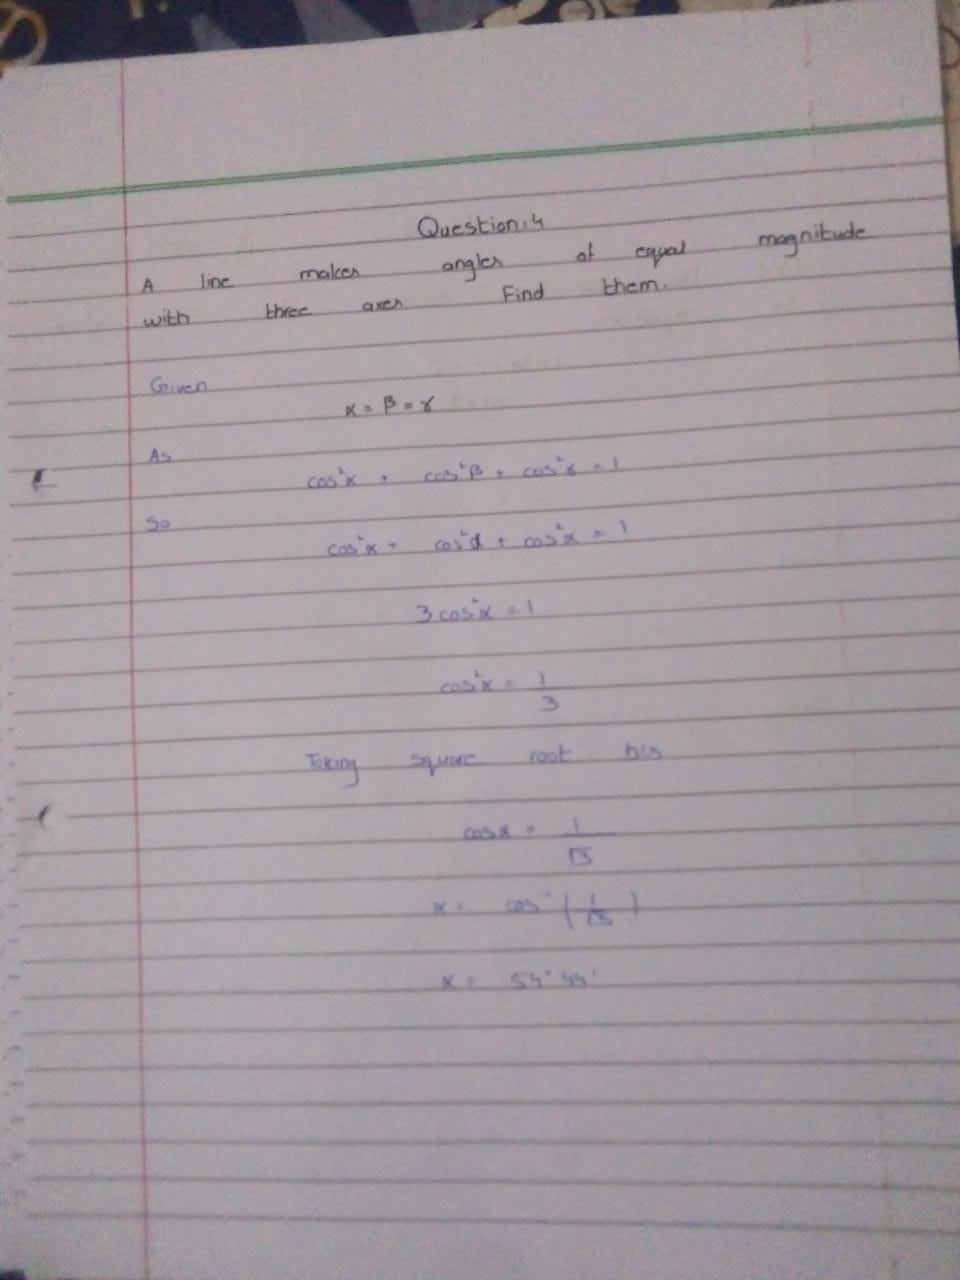 Question:4
A line makes angles of equal magnitude
with three axes Find them.
Given
α = β = γ
As
cos²α + cos²β + cos²γ = 1
So
cos²α + cos²α + cos²α = 1
3cos²α = 1
cos²α = 1/3
Taking square root b/s
cosα = 1/√3
α = cos⁻¹(1/√3)
α = 54° 44'